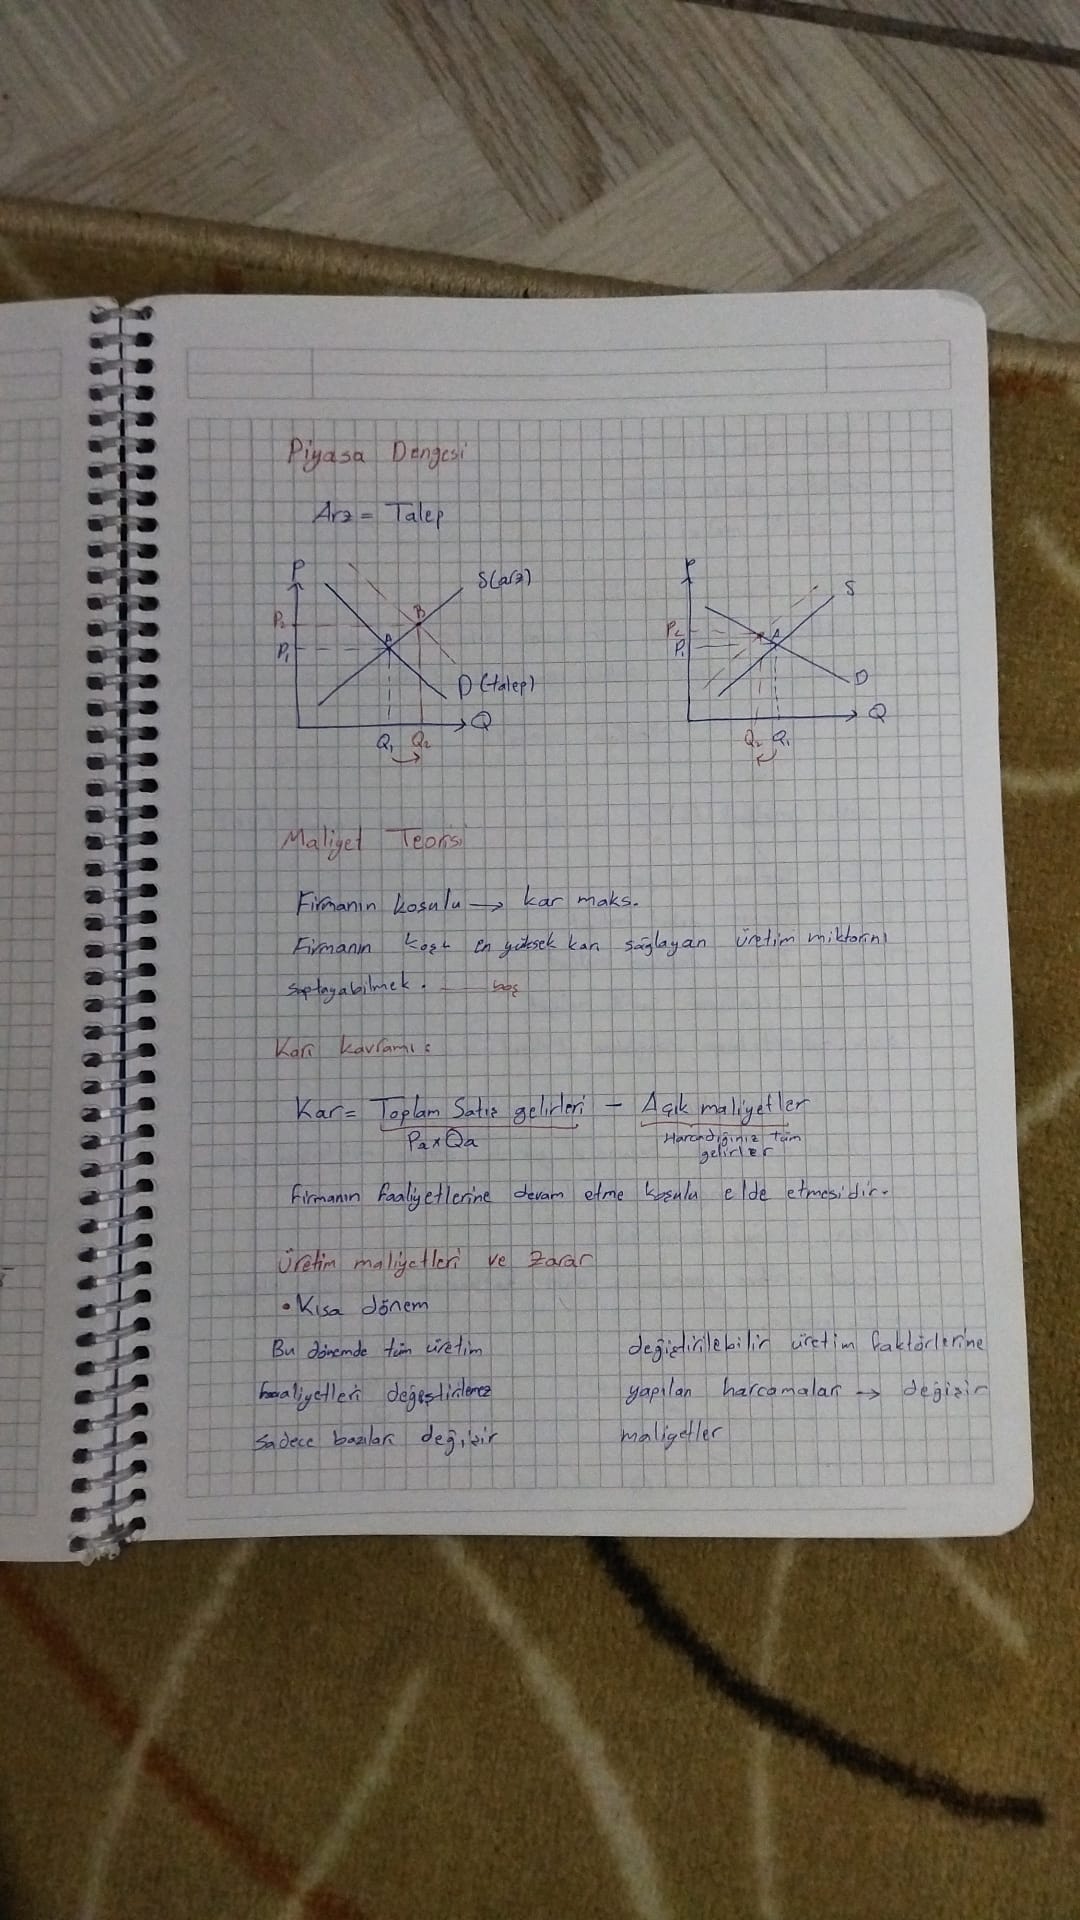 Piyasa Dengesi
Arz = Talep
P
S(arz)
P₂
B
P₁
A
D (talep)
Q
Q₁ Q₂
P
S
P₂
P₁
A
D
Q
Q₂ Q₁
Maliyet Teorisi
Firmanın koşulu → kar maks.
Firmanın en yüksek karı sağlayan üretim miktarını
saptayabilmek.
Karı kavramı:
Kar = Toplam Satış gelirleri - Açık maliyetler
Pa x Qa
Harcadığınız tüm
gelirler
Firmanın faaliyetlerine devam etme koşulu elde etmesidir.
Üretim maliyetleri ve Zarar
• Kısa dönem
Bu dönemde tüm üretim
faaliyetleri değiştirilemez
Sadece bazıları değişir
değiştirilebilir üretim faktörlerine
yapılan harcamalar → değişir
maliyetler